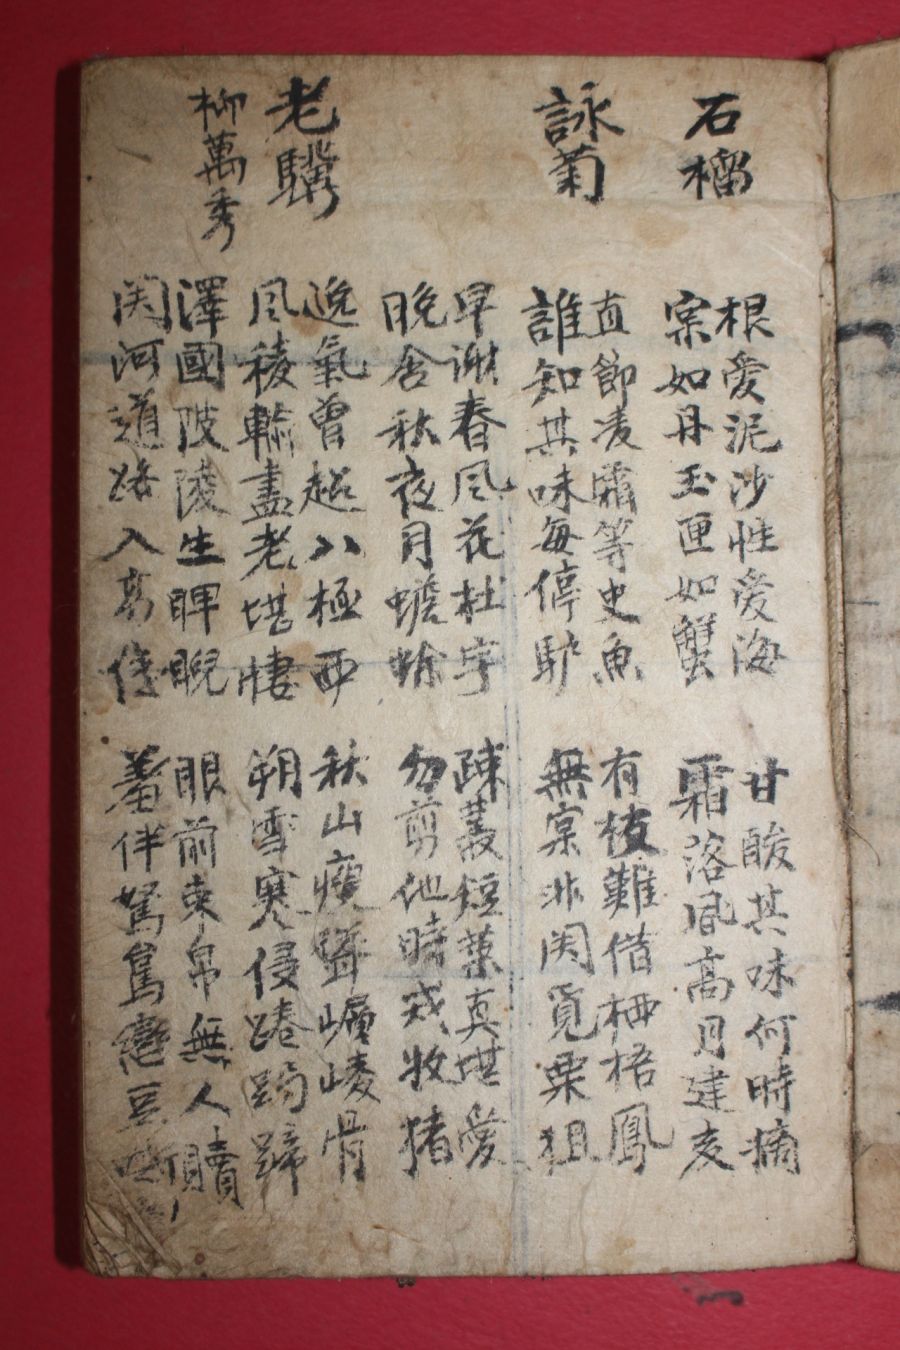 石榴
根愛泥沙性愛海
甘酸其味何時摘
宲如丹玉匣如蟹
霜落風高月建亥
詠菊
直節凌霜等史魚
有枝難借栖梧鳳
誰知其味每停馿
無宲非関覓栗狙
早謝春風花杜宇
踈叢短葉真堪愛
晩含秋夜月蟾蜍
勿剪他時戎牧猪
老驥
柳萬秀
逸氣曾超八極西
秋山瘦聳巑崚骨
風稜輸盡老堪悽
朔雪寒侵踡跼蹄
澤國陂陵生睥睨
眼前束帛無人贖
関河道路入高低
羞伴駑駘戀豆